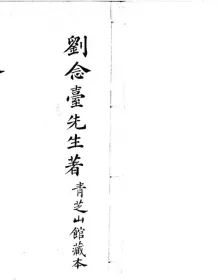 劉念臺先生著
青芝山館藏本